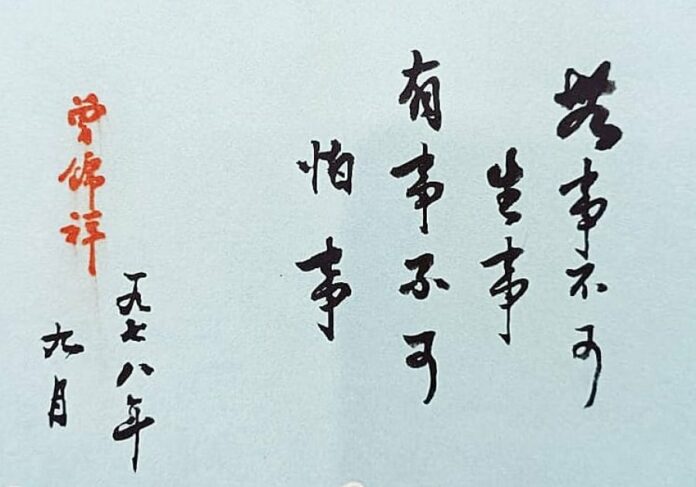 無事不可
生事
有事不可
怕事
曾錦祥
一九七八年
九月